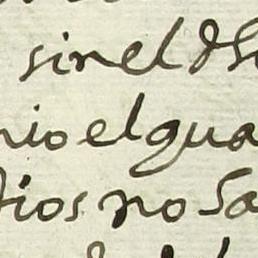 sin el
nio el gua
dios no sa